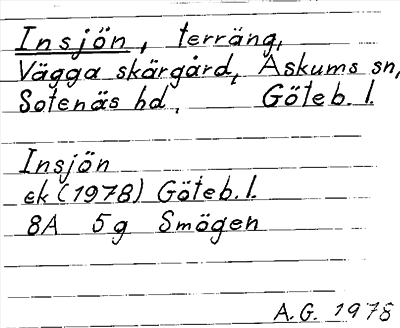 Insjön, terräng,
Vägga skärgård, Askums sn,
Sotenäs hd, Göteb. l.
Insjön
ek (1978) Göteb. l.
8A 5g Smögen
A.G. 1978